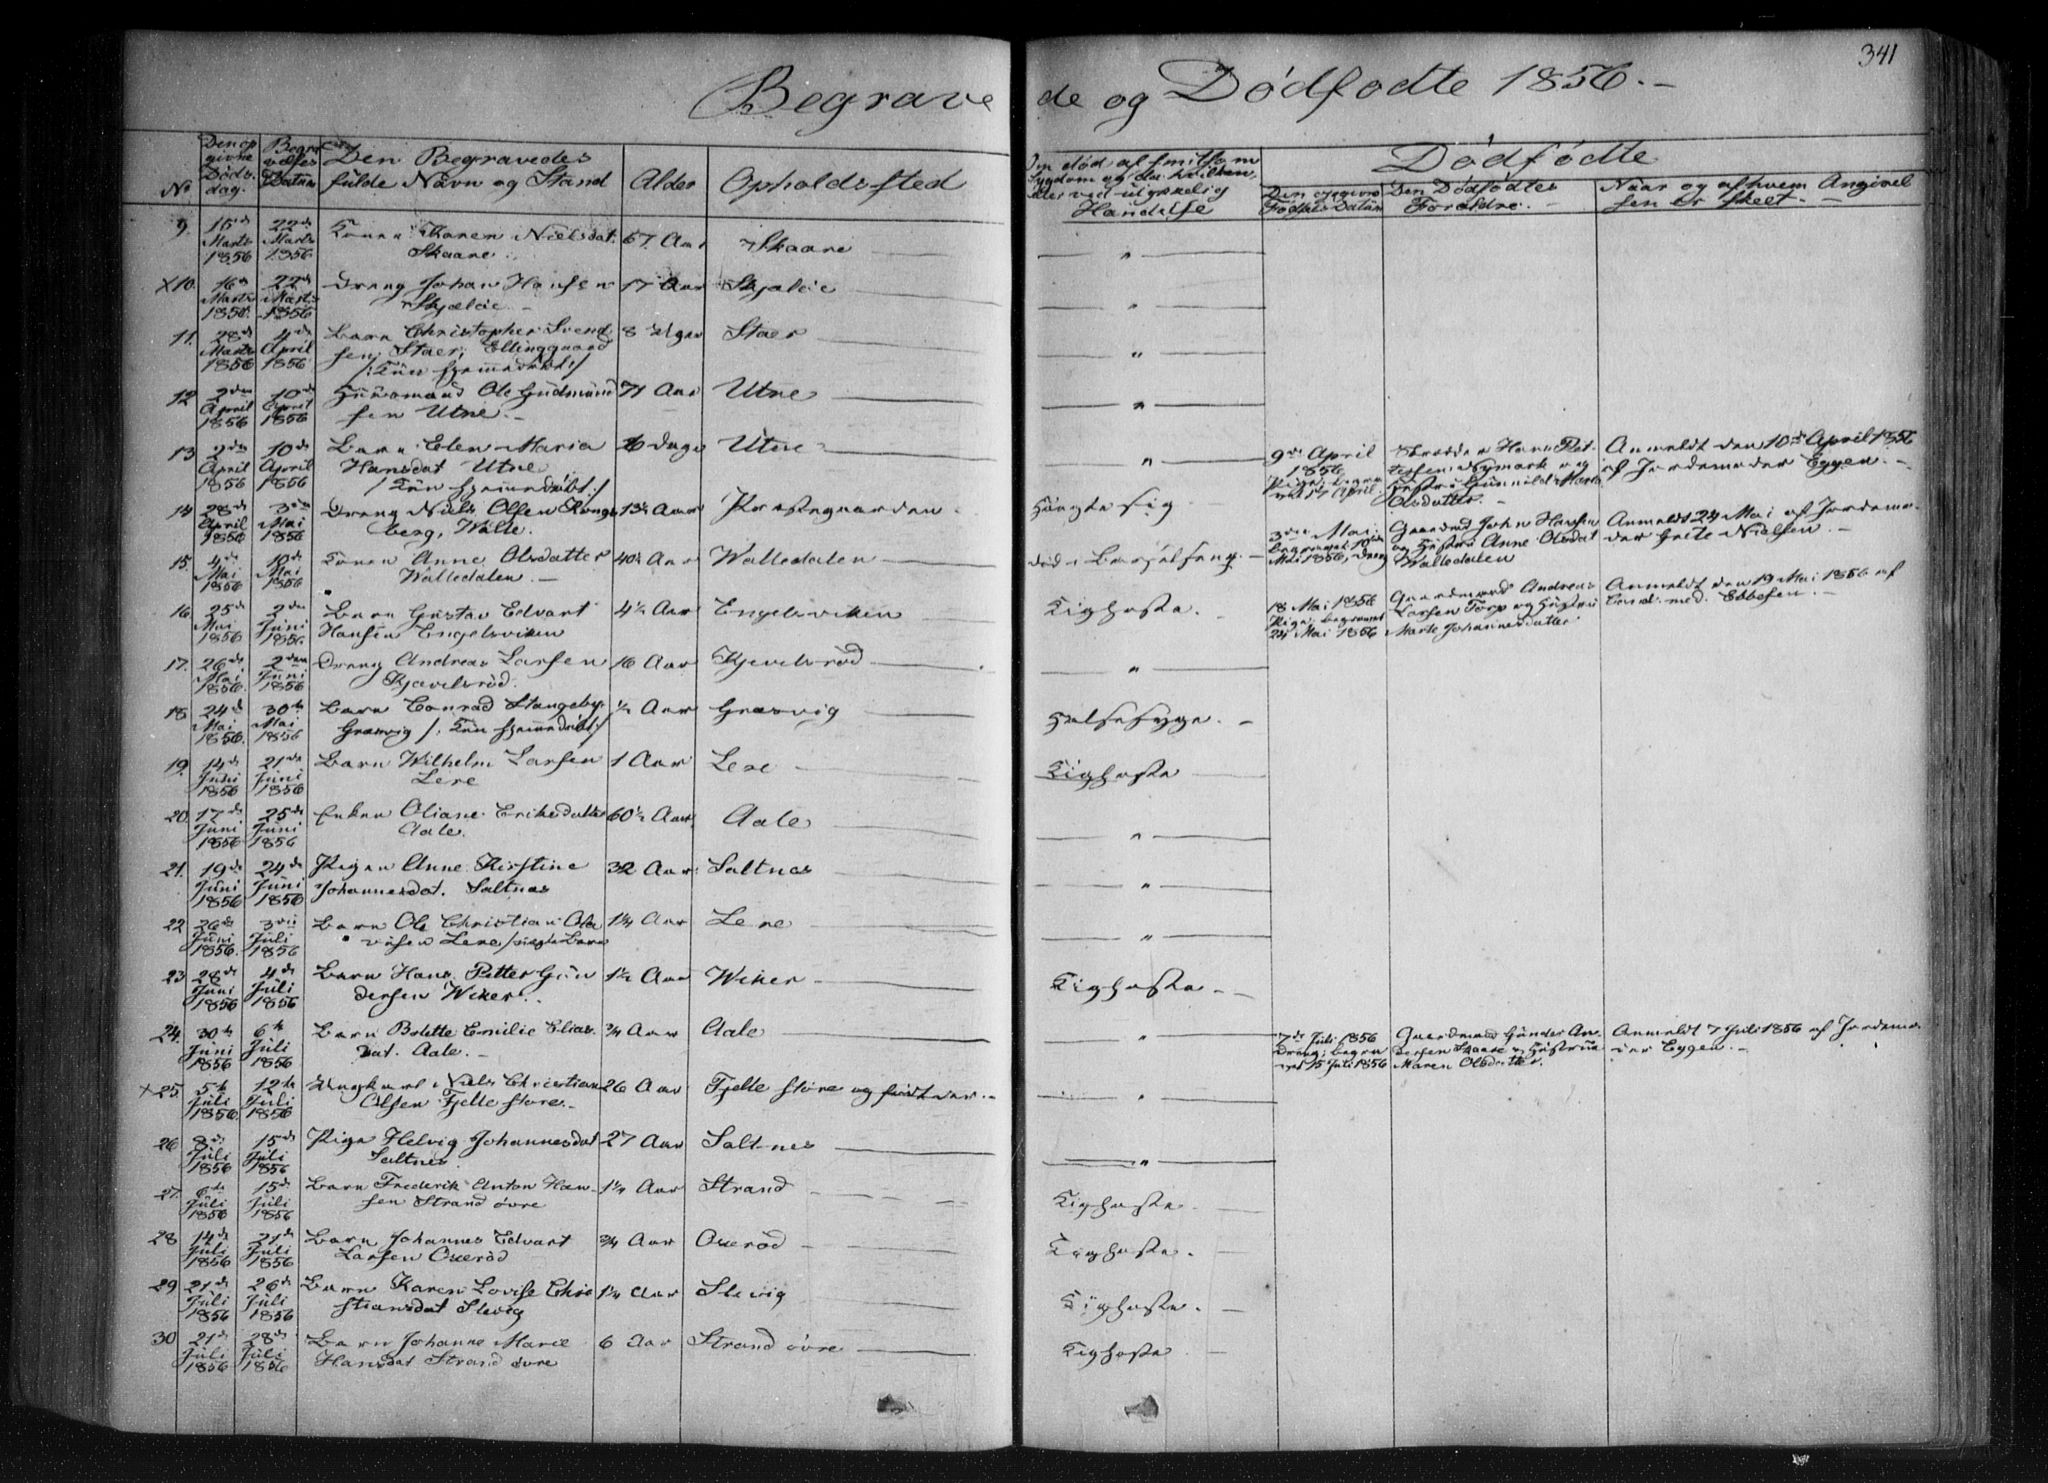 341
Begravede og Dødfødte 1856.
No
Den opgivne Dødsdag.
Begravelses Datum
Den Begravedes fulde Navn og Stand
Alder
Opholdssted
Om død af smitsom Sygdom og da hvilken, eller ved ulykkelig Hændelse
Dødfødte
Den opgivne Fødsels Datum
Den Dødfødtes Forældre.
Naar og af hvem Angivelsen er skeet.
9. 15de Marts 1856 22de Marts 1856 Konen Karen Nielsdat. Skaare. 67 Aar Skaare "
x10. 16de Marts 1856 22de Marts 1856 Dreng Johan Hansen Skjæløe 17 Aar Skjæløe "
11. 28de Marts 1856 4de April 1856 Barn Christopher Svendsen Staer, Ellinggaard /: Kun hjemmedøbt :/ 8 Uger Staer "
12 2den April 1856 10de April 1856 Huusmand Ole Gudmundsen Utne. 71 Aar Utne "
13 2den April 1856 10de April 1856 Barn Elen Maria Hansdat Utne /: Kun hjemmedøbt :/ 6 Dage Utne "
9de April 1856 Pige; begravet 17 April
Skrædder Hans Pettersen Nymark og Hustru Gunnild Marie Olsdatter.
Anmeldt den 10de April 1856 af Jordemoder Eggen.
14 28de April 1856 3die Mai 1856 Dreng Niels Olsen Kongsberg, Walle. 13½ Aar Præstegaarden. Hængte sig
3die Mai begravet 10de Mai 1856, Dreng
Gaardmd John Hansen og Hustru Anne Olsdat Walledalen
Anmeldt 24 Mai af Jordemoder Grete Nielsen.
15. 4de Mai 1856 10de Mai 1856 Konen Anne Olsdatter Walledalen. 40½ Aar Walledalen død i Barselseng.
16. 25de Mai 1856 2den Juni 1856. Barn Gustav Edvart Hansen Engelsviken 4½ Aar Engelsviken Kighoste.
18 Mai 1856 Pige; begravet 24 Mai 1856
Gaardmand Andreas Larsen Torp og Hustru Marte Johannesdatter
Anmeldt den 19 Mai 1856 af Cand. med. Ebbesen.
17. 26de Mai 1856. 2den Juni 1856 Dreng Andreas Larsen Kjævelsrød. 16 Aar Kjævelsrød "
18 24de Mai 1856. 30te Mai 1856 Barn Conrad Stangeby Græsvig /: Kun hjemmedøbt :/ ½ Aar Græsvig Halsesyge.
19. 14de Juni 1856 21de Juni 1856 Barn Wilhelm Larsen Lere 1 Aar Lere Kighoste
20. 17de Juni 1856 25de Juni 1856 Enken Oliane Eriksdatter Aale. 60½ Aar Aale "
21. 19de Juni 1856 24de Juni 1856 Pigen Anne Kirstine Johannesdat. Saltnæs 32 Aar Saltnæs "
22 26de Juni 1856. 3die Juli 1856 Barn Ole Christian Olavesen Lere /uægte Barn 1¼ Aar Lere "
23 28de Juni 1856 4de Juli 1856 Barn Hans Petter Gundersen Wiker. 1½ Aar Wiker Kighoste.
24. 30te Juni 1856 6te Juli 1856 Barn Bolette Emilie Eliasdat. Aale. ¾ Aar Aale "
7de Juli 1856 Dreng; begravet 15 Juli 1856
Gaardmand Gunder Andersen Skaare og Hustru Maren Olsdatter.
Anmeldt 7 Juli 1856 af Jordemoder Eggen.
x25. 5te Juli 1856. 12te Juli 1856 Ungkarl Niels Christian Olsen Fjelle store. 26 Aar Fjelle store "
26 8de Juli 1856 15de Juli 1856 Pige Helvig Johannesdat Saltnes 27 Aar Saltnes "
27. 6te Juli 1856 15de Juli 1856 Barn Frederik Anton Hansen Strand øvre 1¼ Aar Strand Kighoste.
28 14de Juli 1856 21de Juli 1856 Barn Johannes Edvart Larsen Oxerød ¾ Aar Oxerød Kighoste.
29 21de Juli 1856 26de Juli 1856 Barn Karen Lovise Christiansdat Slevig 1¼ Aar Slevig Kighoste.
30 21de Juli 1856 28de Juli 1856 Barn Johanne Marie Hansdat Strand øvre 6 Aar Strand øvre Kighoste